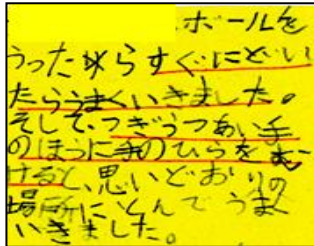 、ボールを
うったらすぐにどい
たらうまくいきました。
そして、つぎうつあい手
のほうに手のひらをむ
けると、思いどおりの
場所にとんでうまく
いきました。